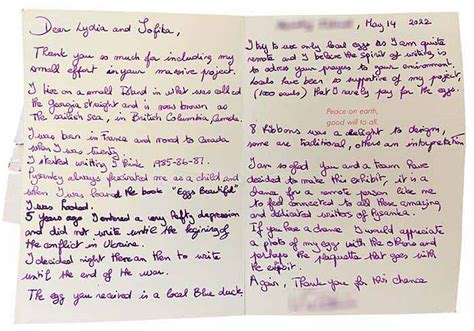 Dear Lydia and Sofika,
Thank you so much for including my
small effort in your massive project.
I live on a small Island in what was called
the Georgia straight and is now known as
the Salish sea, in British Columbia Canada.
I was born in France and moved to Canada
when I was twenty.
I started writing I think 1985-86-87.
Pysanky always fascinated me as a child and
when I was loaned the book "Eggs Beautiful"
I was hooked.
5 years ago I entered a very hefty depression
and did not write until the begining of
the conflict in Ukraine.
I decided right there and then to write
until the end of the war.
The egg you received is a local Blue duck.
May 14 2022
I try to use only local eggs as I am quite
remote and I believe the spirit of writing is
to adress your prayers to your environment.
locals have been so supportive of my project,
(100 ovals) that I rarely pay for the eggs.
Peace on earth,
good will to all.
8 Ribbons was a delight to design,
some are traditional, others an interpretation
I am so glad you and a team have
decided to make this exhibit, it is a
chance for a remote person like me
to feel connected to all these amazing
and dedicated writers of Pysanka.
If you have a chance I would appreciate
a photo of my egg with the others and
perhaps the plaquette that goes with
the exposit.
Again, Thank you for this chance